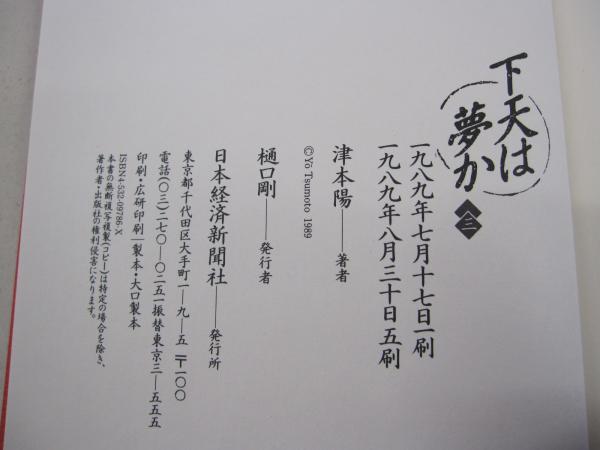 下天は
夢か 三
一九八九年七月十七日一刷
一九八九年八月三十日五刷
津本陽——著者
©Yō Tsumoto 1989
樋口剛——発行者
日本経済新聞社——発行所
東京都千代田区大手町一—九—五 〒一〇〇
電話(〇三)二七〇—〇二五一振替東京三—五五五
印刷・広研印刷｜製本・大口製本
ISBN4-532-09786-X
本書の無断複写複製(コピー)は特定の場合を除き、
著作者・出版社の権利侵害になります。